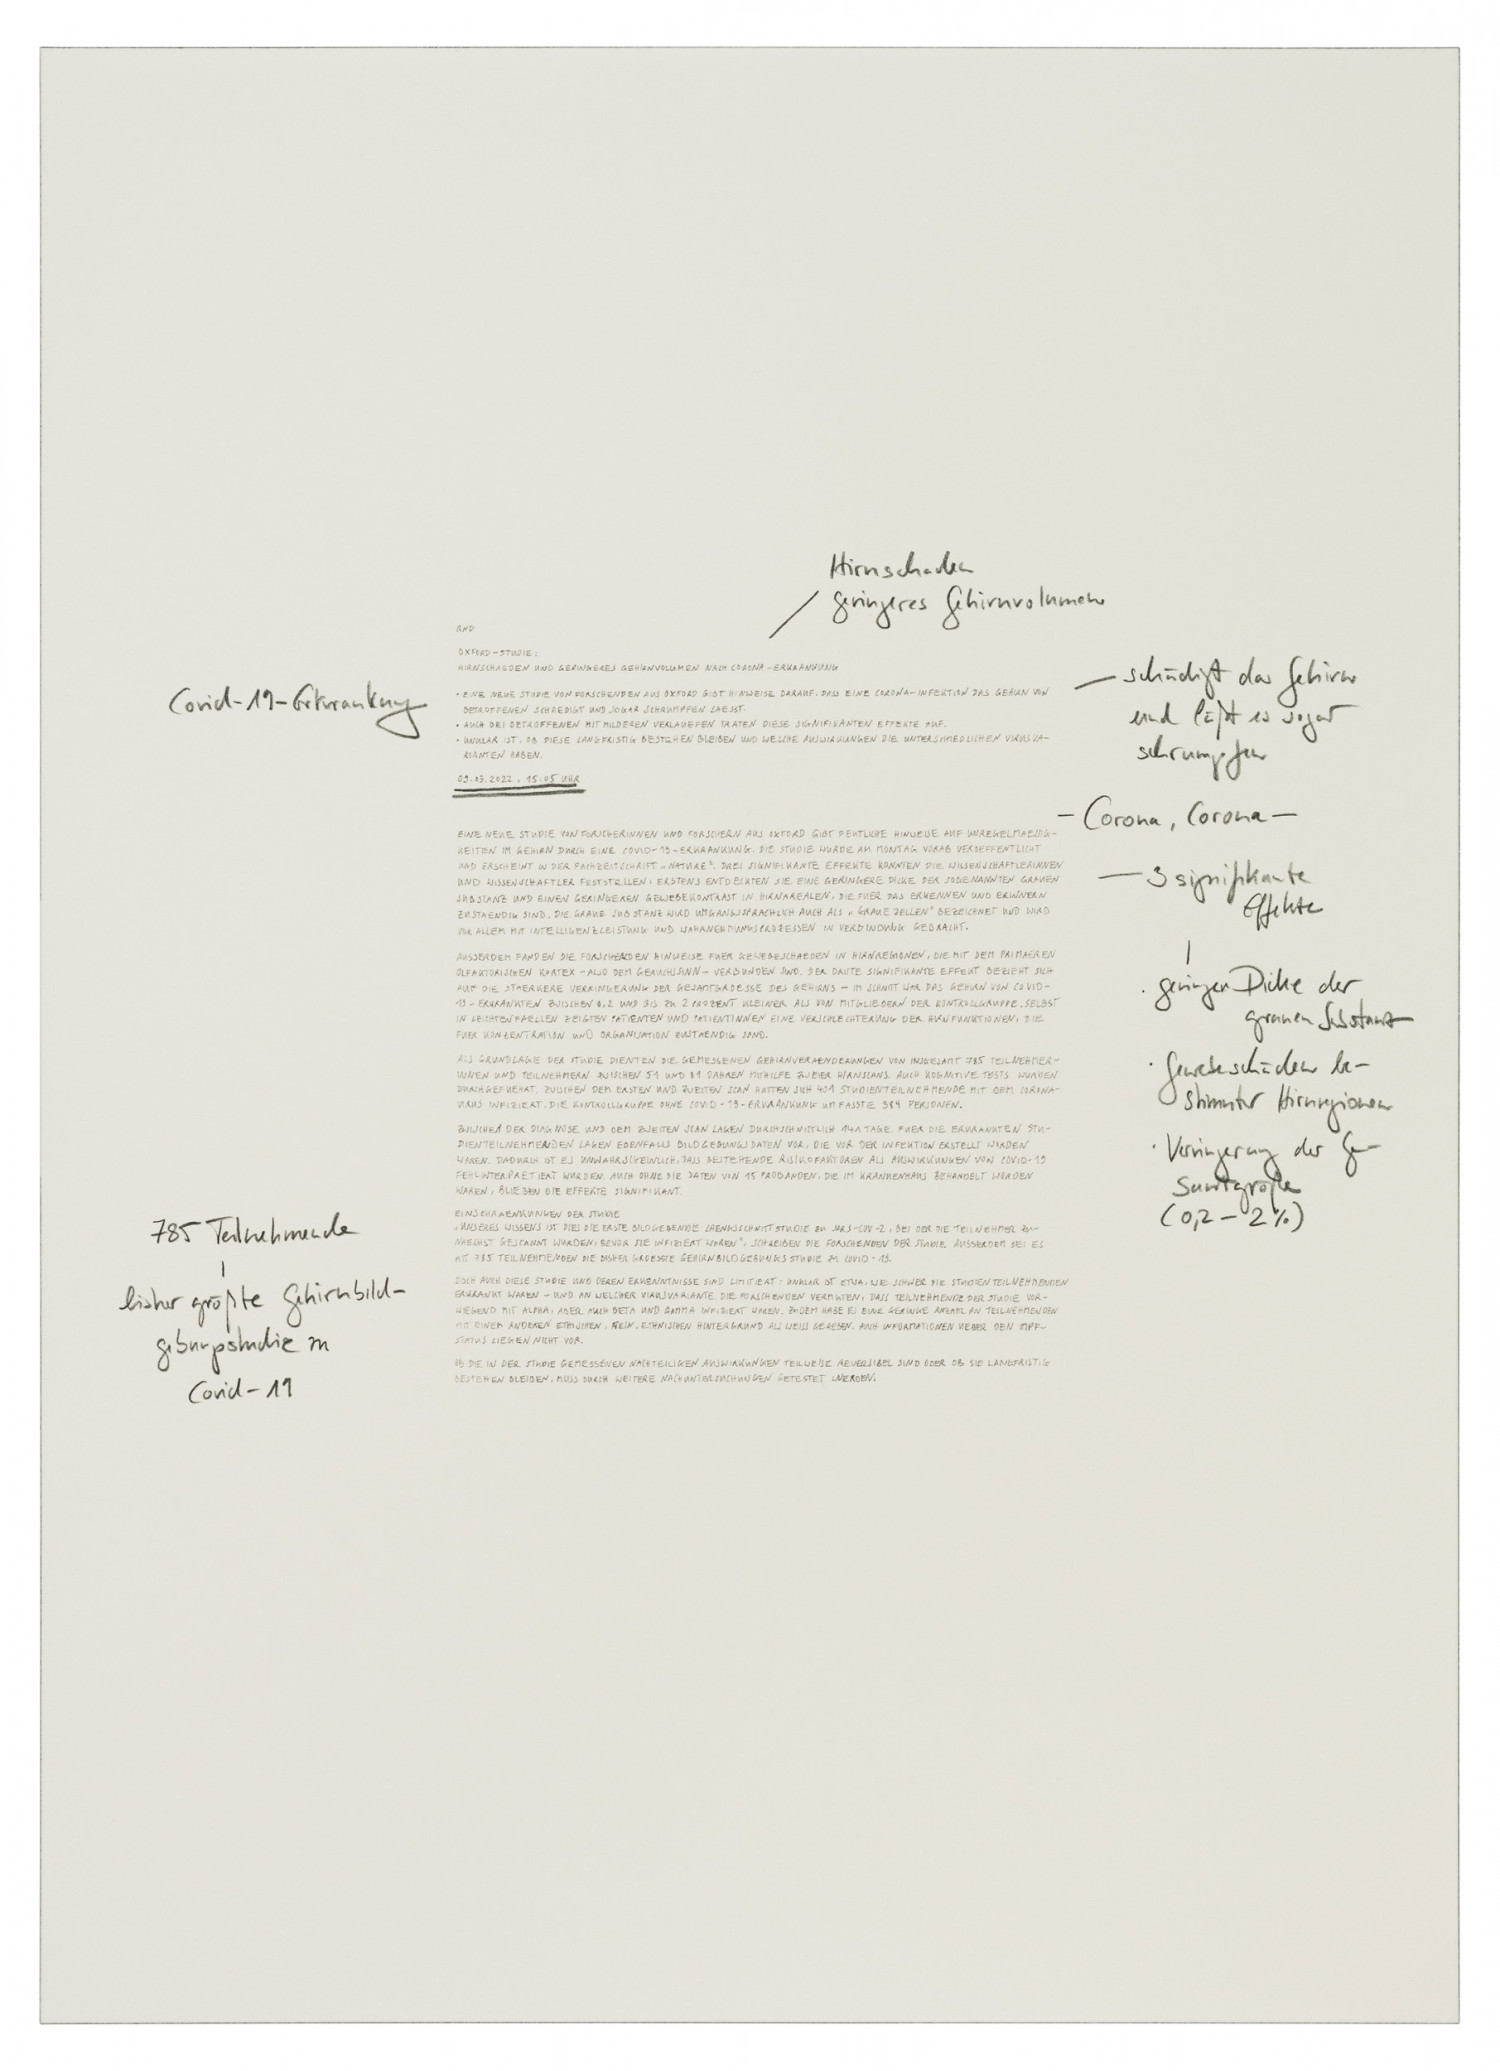 Hirnschaden
geringeres Gehirnvolumen
RND
OXFORD-STUDIE:
HIRNSCHAEDEN UND GERINGERES GEHIRNVOLUMEN NACH CORONA-ERKRANKUNG
Covid-19-Erkrankung
• EINE NEUE STUDIE VON FORSCHENDEN AUS OXFORD GIBT HINWEISE DARAUF, DASS EINE CORONA-INFEKTION DAS GEHIRN VON
BETROFFENEN SCHAEDIGT UND SOGAR SCHRUMPFEN LAESST.
• AUCH BEI BETROFFENEN MIT MILDEREN VERLAEUFEN TRATEN DIESE SIGNIFIKANTEN EFFEKTE AUF.
• UNKLAR IST, OB DIESE LANGFRISTIG BESTEHEN BLEIBEN UND WELCHE AUSWIRKUNGEN DIE UNTERSCHIEDLICHEN VIRUSVA-
RIANTEN HABEN.
09.03.2022, 15:05 UHR
— schädigt das Gehirn
und läßt es sogar
schrumpfen
— Corona, Corona —
EINE NEUE STUDIE VON FORSCHERINNEN UND FORSCHERN AUS OXFORD GIBT DEUTLICHE HINWEISE AUF UNREGELMAESSIG-
KEITEN IM GEHIRN DURCH EINE COVID-19-ERKRANKUNG. DIE STUDIE WURDE AM MONTAG VORAB VEROEFFENTLICHT
UND ERSCHEINT IN DER FACHZEITSCHRIFT „NATURE“. DREI SIGNIFIKANTE EFFEKTE KONNTEN DIE WISSENSCHAFTLERINNEN
UND WISSENSCHAFTLER FESTSTELLEN: ERSTENS ENTDECKTEN SIE EINE GERINGERE DICKE DER SOGENANNTEN GRAUEN
SUBSTANZ UND EINEN GERINGEREN GEWEBEKONTRAST IN HIRNAREALEN, DIE FUER DAS ERKENNEN UND ERINNERN
ZUSTAENDIG SIND. DIE GRAUE SUBSTANZ WIRD UMGANGSSPRACHLICH AUCH ALS „GRAUE ZELLEN“ BEZEICHNET UND WIRD
VOR ALLEM MIT INTELLIGENZLEISTUNG UND WAHRNEHMUNGSPROZESSEN IN VERBINDUNG GEBRACHT.
— 3 signifikante
Effekte
AUSSERDEM FANDEN DIE FORSCHENDEN HINWEISE FUER GEWEBESCHAEDEN IN HIRNREGIONEN, DIE MIT DEM PRIMAEREN
OLFAKTORISCHEN KORTEX - ALSO DEM GERUCHSSINN - VERBUNDEN SIND. DER DRITTE SIGNIFIKANTE EFFEKT BEZIEHT SICH
AUF DIE STAERKERE VERRINGERUNG DER GESAMTGROESSE DES GEHIRNS - IM SCHNITT WAR DAS GEHIRN VON COVID-
19-ERKRANKTEN ZWISCHEN 0,2 UND BIS ZU 2 PROZENT KLEINER ALS VON MITGLIEDERN DER KONTROLLGRUPPE. SELBST
IN LEICHTEN FAELLEN ZEIGTEN PATIENTEN UND PATIENTINNEN EINE VERSCHLECHTERUNG DER HIRNFUNKTIONEN, DIE
FUER KONZENTRATION UND ORGANISATION ZUSTAENDIG SIND.
· geringere Dicke der
grauen Substanz
· Gewebeschäden be-
stimmter Hirnregionen
· Verringerung der Ge-
samtgröße
(0,2 – 2%)
ALS GRUNDLAGE DER STUDIE DIENTEN DIE GEMESSENEN GEHIRNVERAENDERUNGEN VON INSGESAMT 785 TEILNEHMER-
INNEN UND TEILNEHMERN ZWISCHEN 51 UND 81 JAHREN MITHILFE ZWEIER HIRNSCANS. AUCH KOGNITIVE TESTS WURDEN
DURCHGEFUEHRT. ZWISCHEN DEM ERSTEN UND ZWEITEN SCAN HATTEN SICH 401 STUDIENTEILNEHMENDE MIT DEM CORONA-
VIRUS INFIZIERT. DIE KONTROLLGRUPPE OHNE COVID-19-ERKRANKUNG UMFASSTE 384 PERSONEN.
ZWISCHEN DER DIAGNOSE UND DEM ZWEITEN SCAN LAGEN DURCHSCHNITTLICH 141 TAGE. FUER DIE ERKRANKTEN STU-
DIENTEILNEHMENDEN LAGEN EBENFALLS BILDGEBUNGSDATEN VOR, DIE VOR DER INFEKTION ERSTELLT WORDEN
WAREN. DADURCH IST ES UNWAHRSCHEINLICH, DASS BESTEHENDE RISIKOFAKTOREN ALS AUSWIRKUNGEN VON COVID-19
FEHLINTERPRETIERT WURDEN. AUCH OHNE DIE DATEN VON 15 PROBANDEN, DIE IM KRANKENHAUS BEHANDELT WORDEN
WAREN, BLIEBEN DIE EFFEKTE SIGNIFIKANT.
785 Teilnehmende
bisher größte Gehirnbild-
gebungsstudie zu
Covid-19
EINSCHRAENKUNGEN DER STUDIE
„UNSERES WISSENS IST DIES DIE ERSTE BILDGEBENDE LAENGSSCHNITTSTUDIE ZU SARS-COV-2, BEI DER DIE TEILNEHMER ZU-
NAECHST GESCANNT WURDEN, BEVOR SIE INFIZIERT WAREN“, SCHREIBEN DIE FORSCHENDEN DER STUDIE. AUSSERDEM SEI ES
MIT 785 TEILNEHMENDEN DIE BISHER GROESSTE GEHIRNBILDGEBUNGSSTUDIE ZU COVID-19.
DOCH AUCH DIESE STUDIE UND DEREN ERKENNTNISSE SIND LIMITIERT: UNKLAR IST ETWA, WIE SCHWER DIE STUDIENTEILNEHMENDEN
ERKRANKT WAREN - UND AN WELCHER VIRUSVARIANTE. DIE FORSCHENDEN VERMUTEN, DASS TEILNEHMENDE DER STUDIE VOR-
WIEGEND MIT ALPHA, ABER AUCH BETA UND GAMMA INFIZIERT WAREN. ZUDEM HABE ES EINE GERINGE ANZAHL AN TEILNEHMENDEN
MIT EINEM ANDEREN ETHISCHEN, NEIN, ETHNISCHEN HINTERGRUND ALS WEISS GEGEBEN. AUCH INFORMATIONEN UEBER DEN IMPF-
STATUS LIEGEN NICHT VOR.
OB DIE IN DER STUDIE GEMESSENEN NACHTEILIGEN AUSWIRKUNGEN TEILWEISE REVERSIBEL SIND ODER OB SIE LANGFRISTIG
BESTEHEN BLEIBEN, MUSS DURCH WEITERE NACHUNTERSUCHUNGEN GETESTET WERDEN.